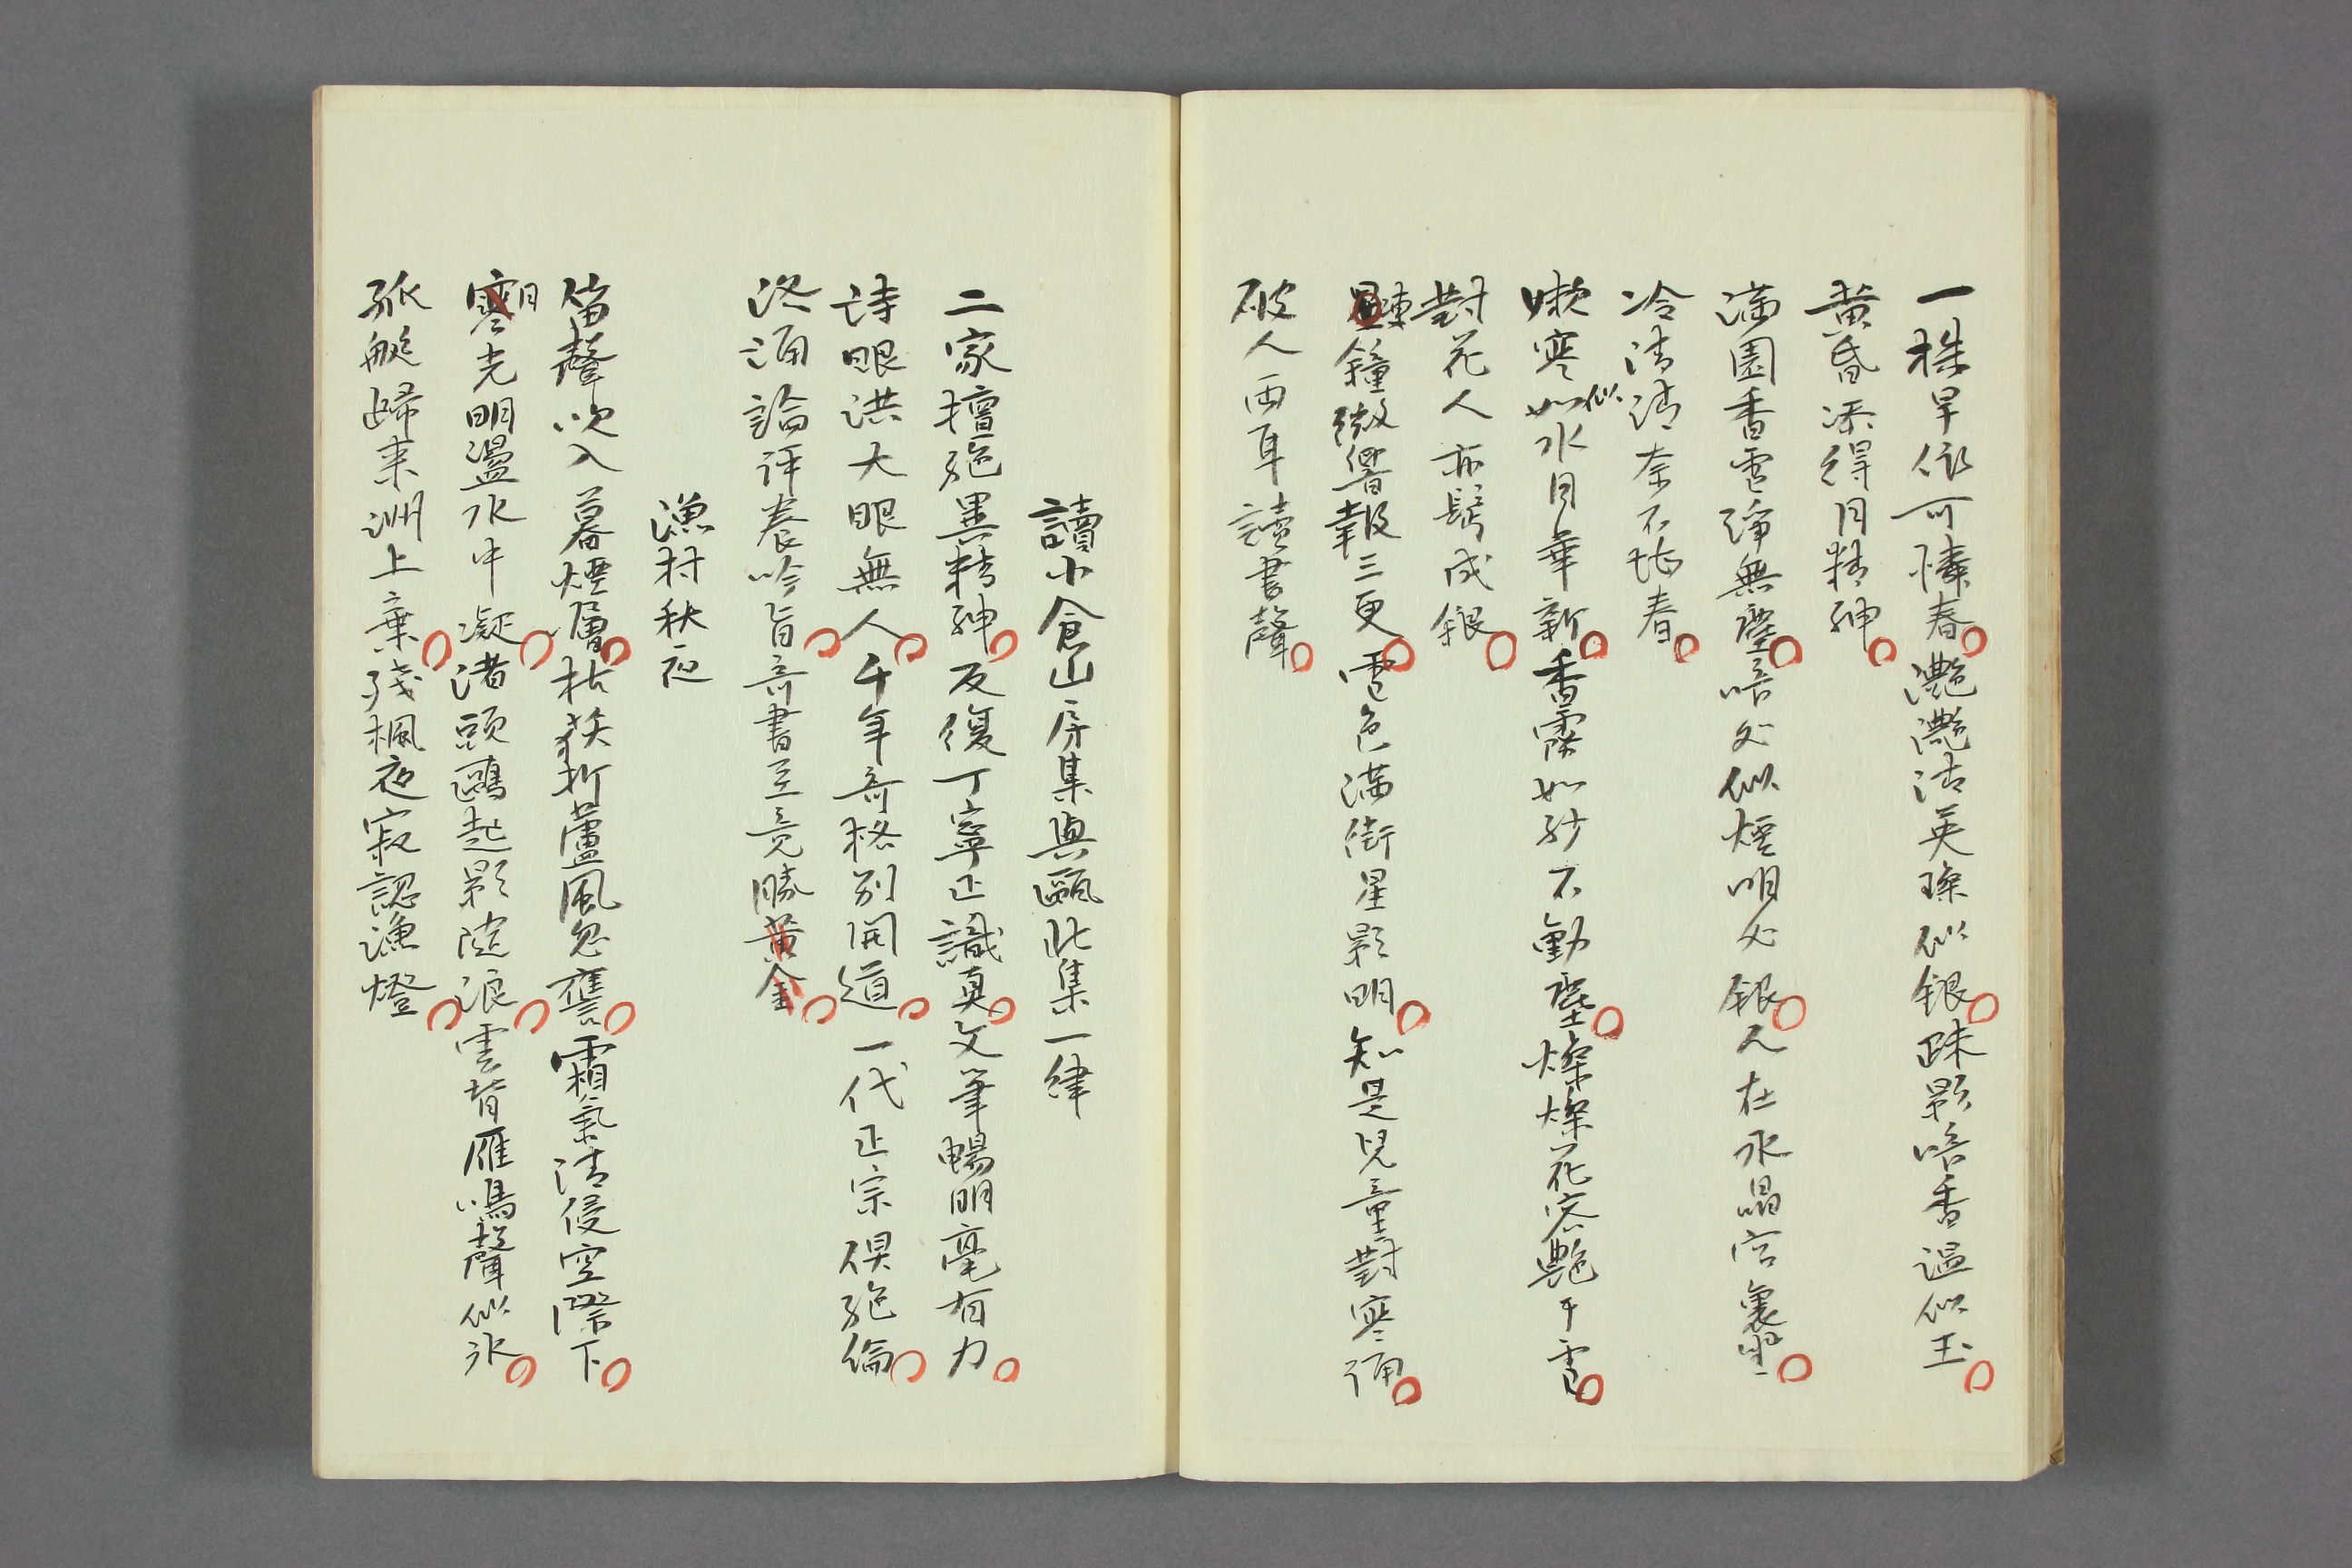 一株早依可憐春灔灔沽英瓈似銀疎影暗香温似玉
黄昏添得月精神
満園香雪弾無塵暗処似煙明処銀人在水晶宮裏望
冷清清奈不地春
嫩寒如似水月華新香霧如紗不動塵燦燦花容艶于雪
對花人亦鬂成銀
疎鐘微響報三更雪色満街星影明知是兒童對寒
破人両耳讀書聲
讀小倉山房集與甌北集一律
二家擅絶異精神反復丁寧正識真文筆暢明毫有力
詩眼洪大眼無人千年奇格别開道一代正宗倶絶倫
汝涌論評養吟旨奇書至竟勝黄金
漁村秋夜
笛聲吹入暮煙層枯荻折蘆風忽譍霜氣清侵空際下
寒月光明盪水中凝渚頭鷗起影陸浪雲背雁鳴聲似氷
孤艇歸来洲上棄残楓夜寂認漁燈